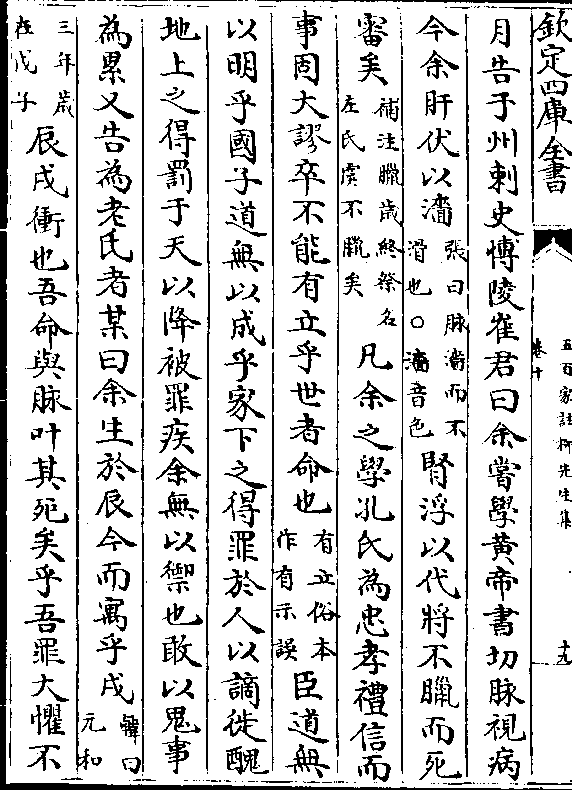 欽定四庫全書
五百家註柳先生集
卷十
十九
月告于州刺史博陵崔君曰余嘗學黃帝書切脉視病
今余肝伏以濇張曰脉濇而不滑也○濇音色腎浮以代將不臘而死
審矣補注臘歲終祭名左氏虞不臘矣凡余之學孔氏為忠孝禮信而
事固大謬卒不能有立乎世者命也有立俗本作有示誤臣道無
以明乎國子道無以成乎家下之得罪於人以謫徙醜
地上之得罰于天以降被罪疾余無以禦也敢以鬼事
為累又告為老氏者某曰余生於辰今而寓乎戌韓曰元和
三年歲在戊子辰戌衝也吾命與脉叶其死矣乎吾罪大懼不